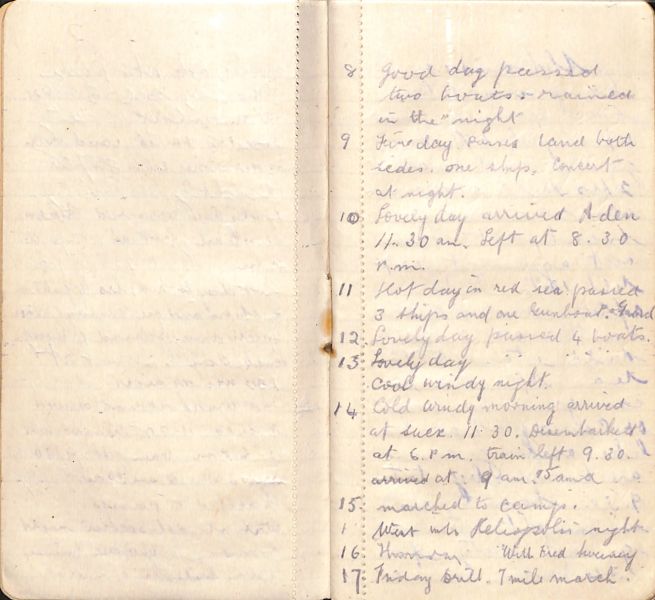 8 Good day passed
two boats rained
in the night
9 Fine day. Passes land both
sides. one ship. Concert
at night.
10 Lovely day arrived Aden
11.30 am. Left at 8.30
P.m.
11 Hot day in red sea passed
3 ships and one Gunboat.
12. Lovely day passed 4 boats.
13. Lovely day
Cool windy night.
14. Cold windy morning arrived
at suez 11.30. Disembarked
at 6. P.m. train left 9.30.
arrived at 9 am. and
15. marched to camp.
1 Went into Heliopolis night
16. With Fred
17. Friday Drill. 7 mile march.